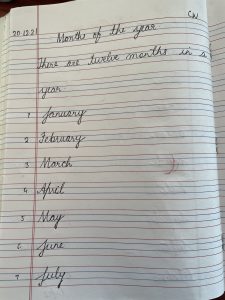 CW
20.12.21
Months of the year
There are twelve months in a
year
1 January
2 February
3 March
4 April
5 May
6 June
7 July